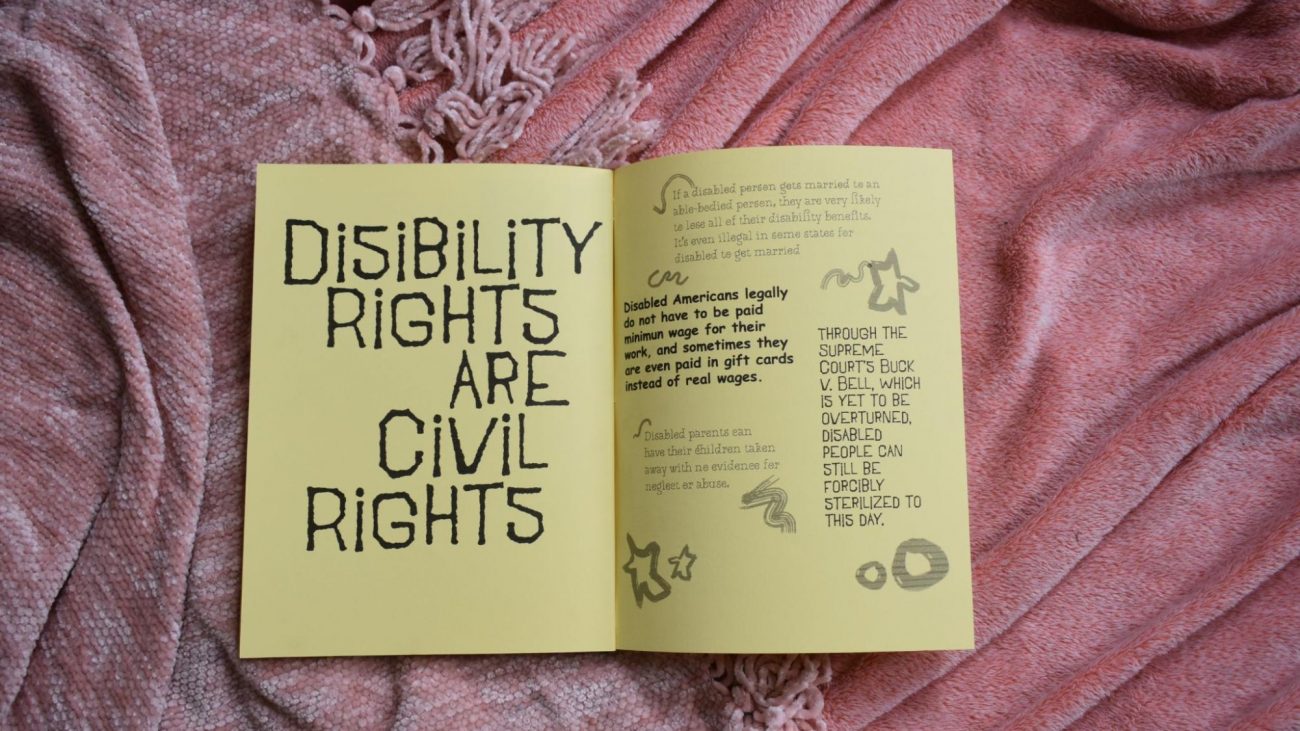 DiSiBiLiTY
RiGHTS
ARE
CiViL
RiGHTS
If a disabled person gets married to an
able-bodied person, they are very likely
to lose all of their disability benefits.
It's even illegal in some states for
disabled to get married
Disabled Americans legally
do not have to be paid
minimun wage for their
work, and sometimes they
are even paid in gift cards
instead of real wages.
Disabled parents can
have their children taken
away with no evidence for
neglect or abuse.
THROUGH THE
SUPREME
COURT'S BUCK
V. BELL, WHICH
IS YET TO BE
OVERTURNED,
DISABLED
PEOPLE CAN
STILL BE
FORCIBLY
STERILIZED TO
THIS DAY.